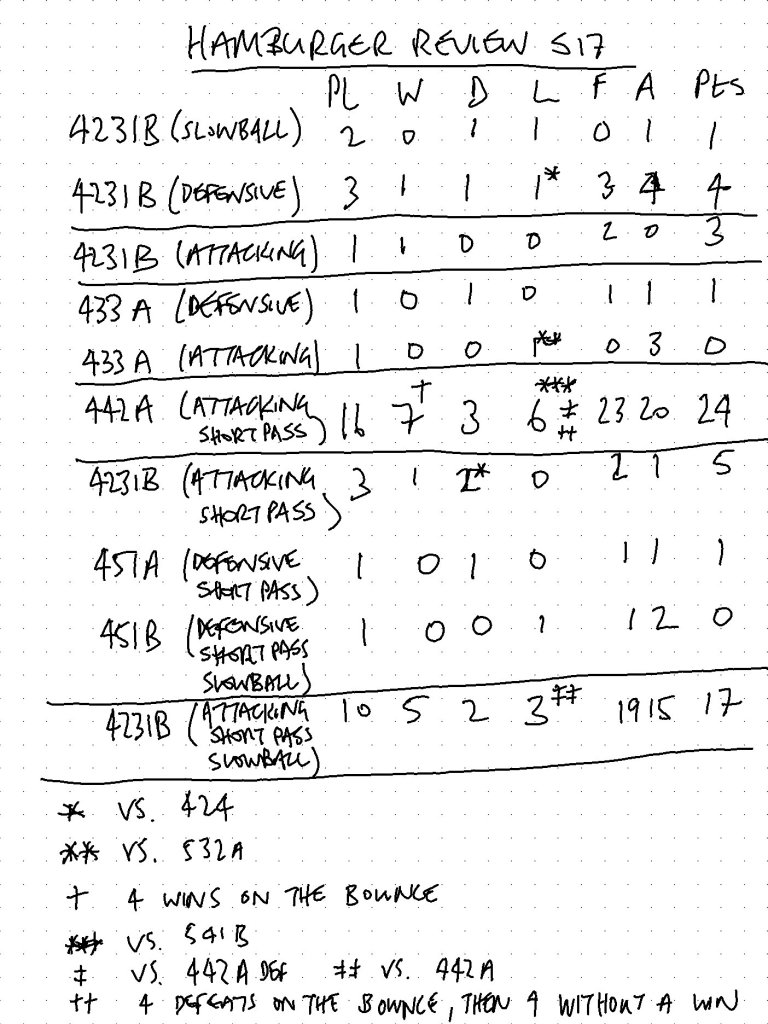 HAMBURGER REVIEW S17
PL W D L F A PTS
4231B (SLOWBALL) 2 0 1 1 0 1 1
4231B (DEFENSIVE) 3 1 1 1* 3 4 4
4231B (ATTACKING) 1 1 0 0 2 0 3
433A (DEFENSIVE) 1 0 1 0 1 1 1
433A (ATTACKING) 1 0 0 1** 0 3 0
† ***
442A (ATTACKING 16 7 3 6 ‡ 23 20 24
SHORT PASS) ††
4231B (ATTACKING 3 1 2* 0 2 1 5
SHORT PASS)
451A (DEFENSIVE 1 0 1 0 1 1 1
SHORT PASS)
451B (DEFENSIVE 1 0 0 1 1 2 0
SHORT PASS
SLOWBALL)
4231B (ATTACKING 10 5 2 3‡‡ 19 15 17
SHORT PASS
SLOWBALL)
* VS. 424
** VS. 532A
† 4 WINS ON THE BOUNCE
*** VS. 541B
‡ VS. 442A DEF ‡‡ VS. 442A
†† 4 DEFEATS ON THE BOUNCE, THEN 9 WITHOUT A WIN